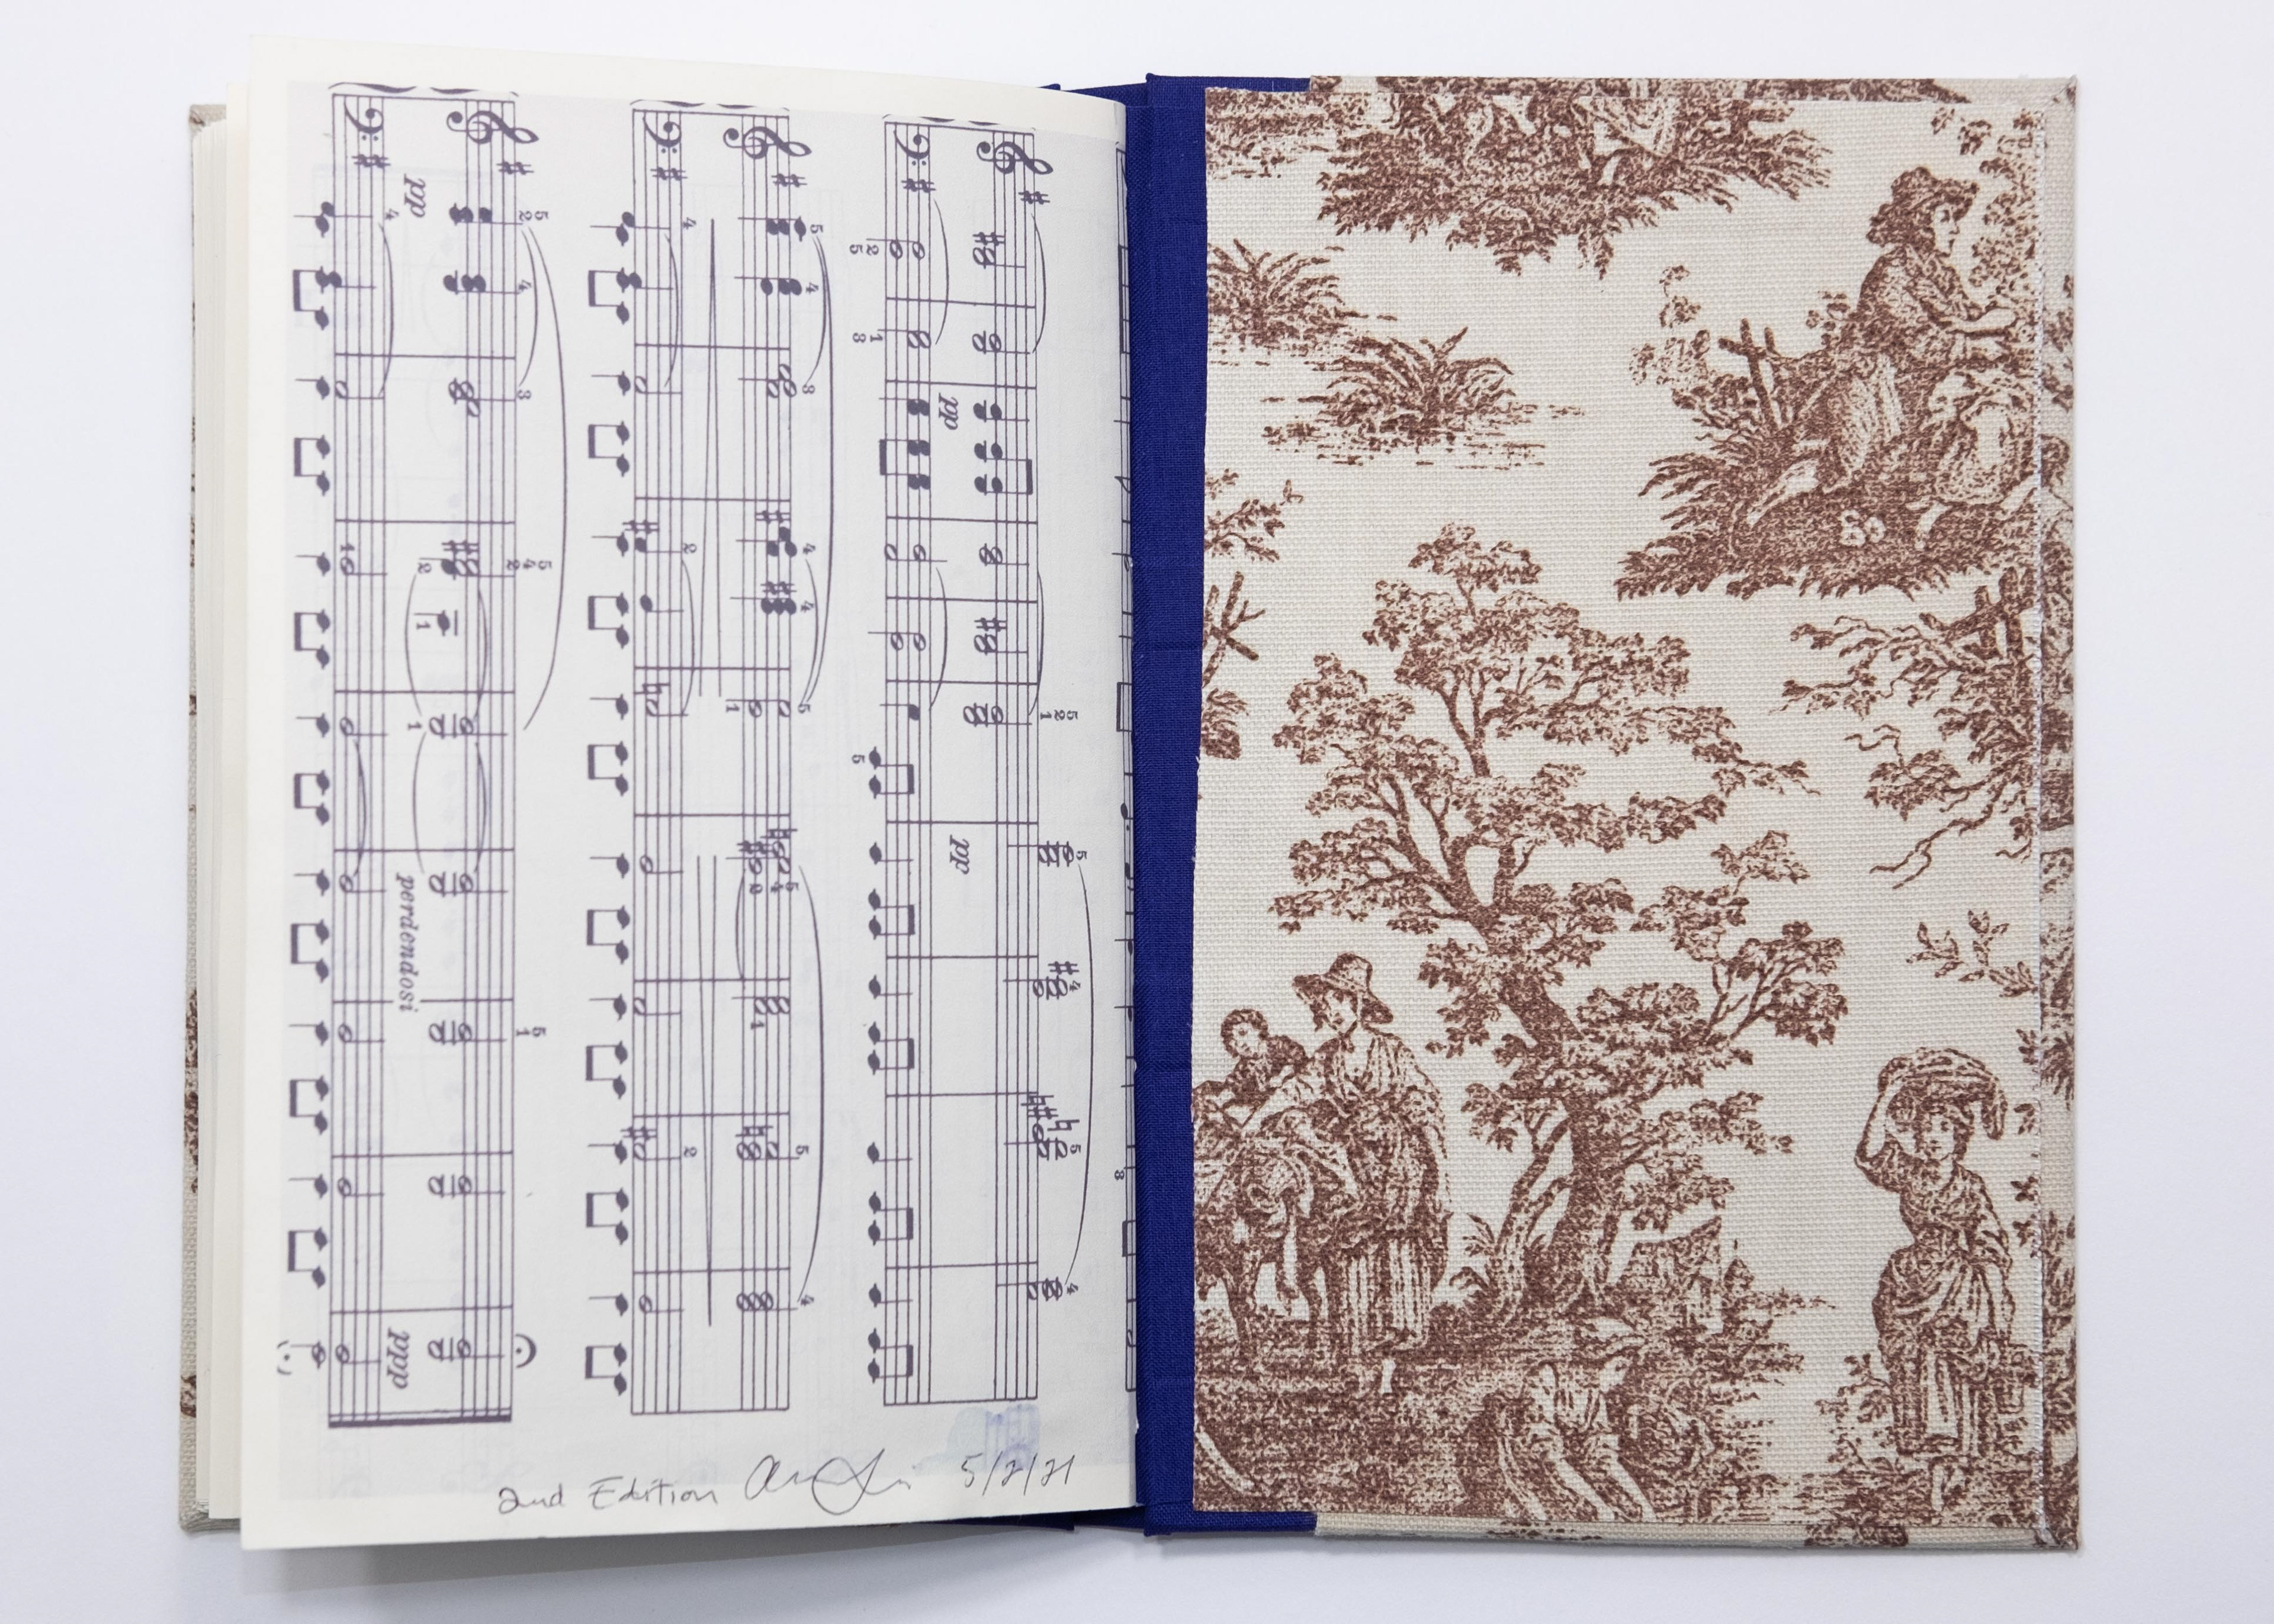 pp
pp
pp
perdendosi
ppp
2nd Edition 5/2/21